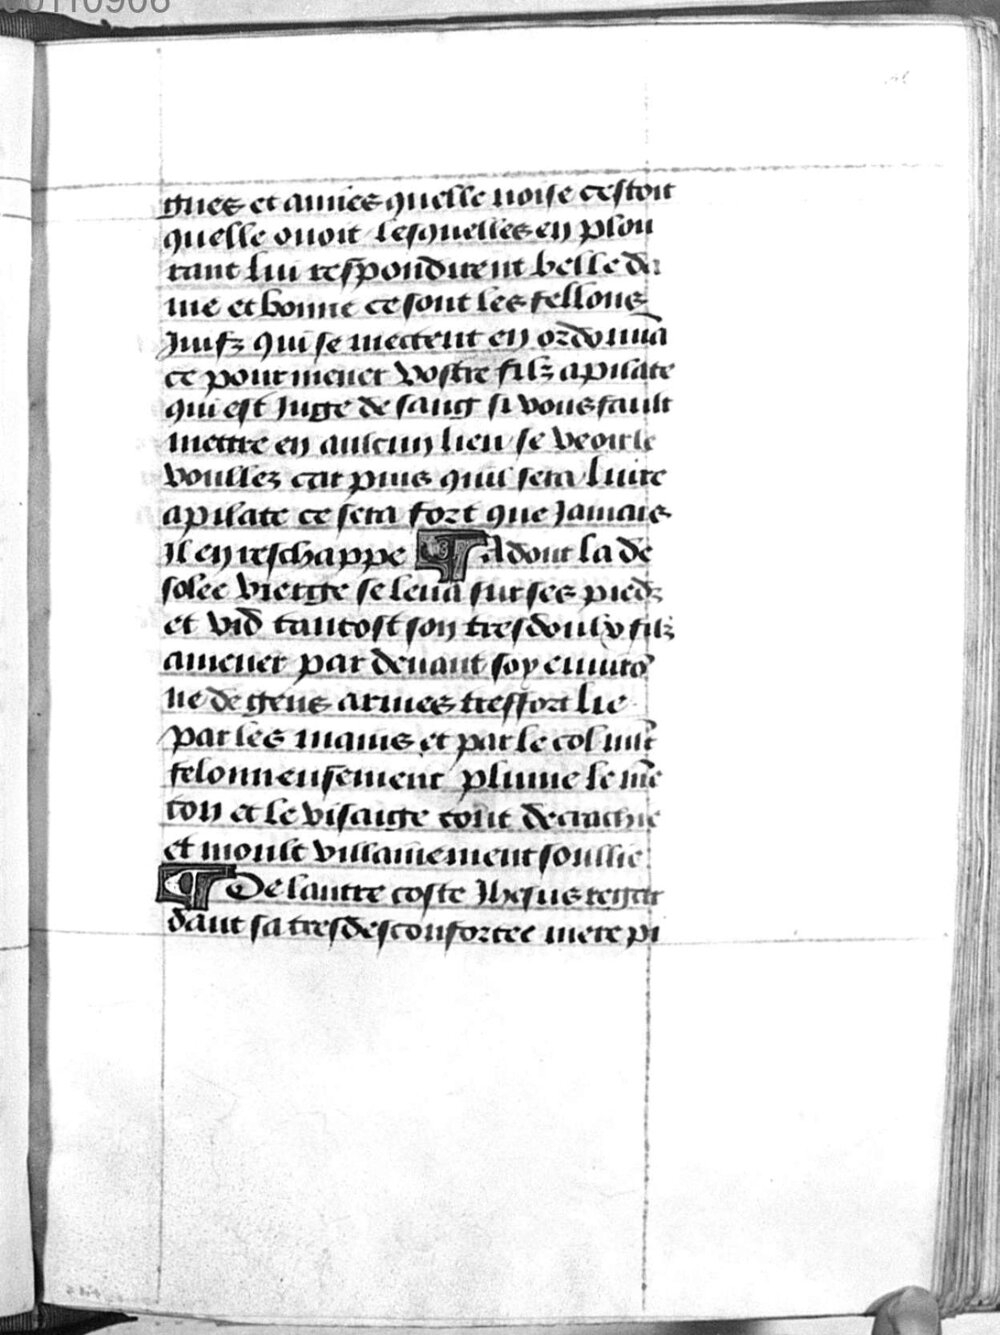 gnes et amies quelle noise cestoit
quelle ouoit lesquelles en plou
rant lui respondirent belle da
me et bonne ce sont les fellons
Juifz qui se mectent en ordonnā
ce pour mener vostre filz a pilate
qui est Juge de sang si vous fault
mettre en aulcun lieu se veoir le
voullez car puis quil sera liure
a pilate ce sera fort que Jamais
Il en reschappe ¶ Adont la de
solee vierge se leua sur ses piedz
et vid tantost son tresdoulx filz
amener par deuant soy enuirō
ne de gens armes tresfort lie
par les mains et par le col mlt
felonneusement plume le mē
ton et le visaige tout decrachie
et moult villainement soullie
¶ De lautre coste Jhesus regar
dant sa tresdesconfortee mere pi